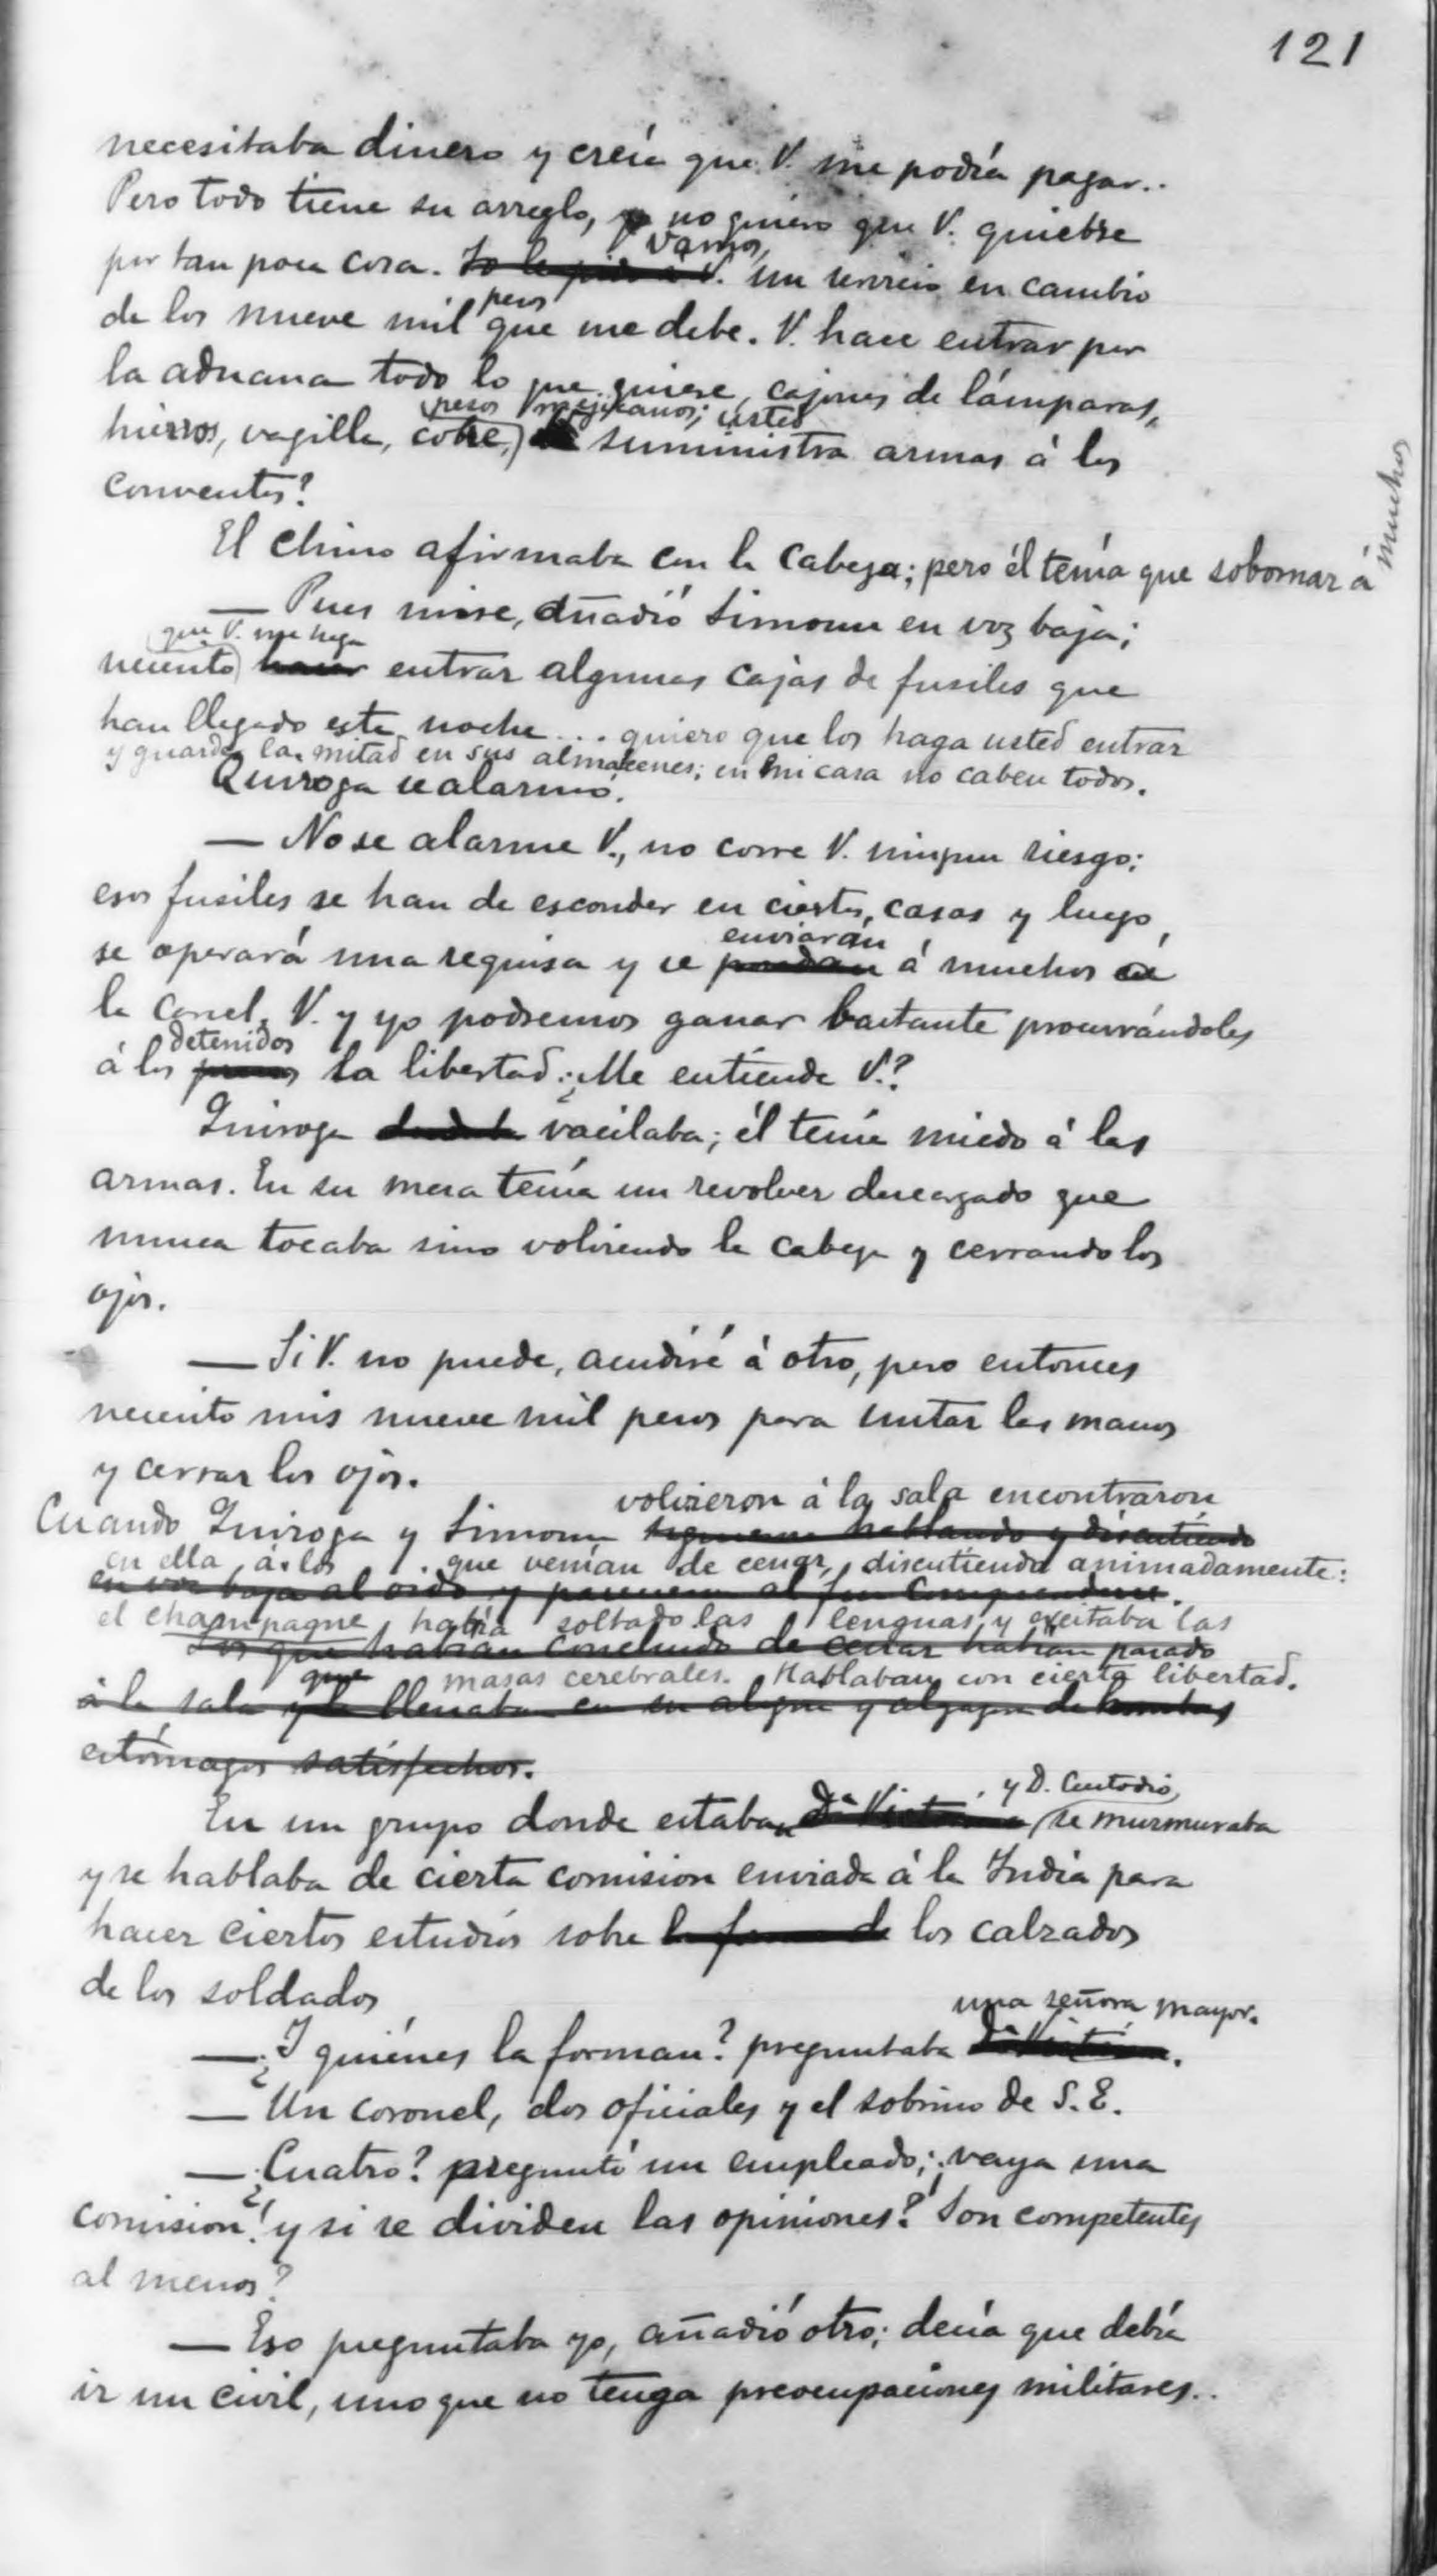 121
necesitaba dinero y creía que V. me podría pagar..
Pero todo tiene su arreglo, no quiero que V. quiebre
Vamos,
por tan poca cosa. Yo le pido á V. un servicio en cambio
pesos
de los nueve mil que me debe. V. hace entrar por
la aduana todo lo que quiere, cajones de lámparas,
pesos mejicanos; usted
hierros, vagilla, cobre, suministra armas á los
conventos?
El chino afirmaba con la cabeza; pero él tenía que sobornar á muchos
— Pues mire, añadió Simoun en voz baja;
que V. me haga
necesito hacer entrar algunas cajas de fusiles que
han llegado esta noche... quiero que los haga usted entrar
y guarde la mitad en sus almacenes; en mi casa no caben todos.
Quiroga se alarmó.
— No se alarme V., no corre V. ningun riesgo;
esos fusiles se han de esconder en ciertas casas y luego
enviarán
se operará una requisa y se á muchos á
la carcel, V. y yo podremos ganar bastante procurándoles
detenidos
á los presos la libertad. ¿Me entiende V.?
Quiroga dudaba vacilaba; él tenía miedo á las
armas. En su mesa tenía un revolver descargado que
nunca tocaba sino volviendo la cabeza y cerrando los
ojos.
— Si V. no puede, acudiré á otro, pero entonces
necesito mis nueve mil pesos para untar las manos
y cerrar los ojos.
volvieron á la sala encontraron
Cuando Quiroga y Simoun siguieron hablando y discutiendo
en ella á los que venían de cenar, discutiendo animadamente:
en voz baja al oido y parecieron al fin comprenderse.
el champagne había soltado las lenguas y excitaba las
Los que habían concluido de cenar habían pasado
que masas cerebrales. Hablaban con cierta libertad.
á la sala y la llenaban en su alegre y algazara de
estómagos satisfechos.
y D. Custodio,
En un grupo donde estaban Dª Victorina se murmuraba
y se hablaba de cierta comision enviada á la India para
hacer ciertos estudios sobre la forma de los calzados
de los soldados
una señora mayor.
— ¿Y quiénes la forman? preguntaba Dª Victorina.
— Un coronel, dos oficiales y el sobrino de S. E.
— ¿Cuatro? preguntó un empleado; ¡vaya una
comision! y si se dividen las opiniones? Son competentes
al menos?
— Eso preguntaba yo, añadió otro; decía que debía
ir un civil, uno que no tenga preocupaciones militares..